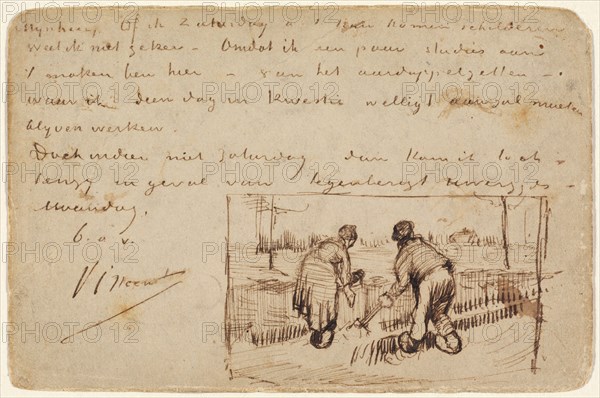 Of ik Zaturdag a s kan komen schilderen
weet ik niet zeker – Omdat ik een paar studies aan
't maken ben hier – van het aardappelzetten –
waar ik dien dag in kwestie welligt aan zal moeten
blyven werken.
Doch indien niet Zaturdag dan kom ik toch
tenzy in geval van tegenberigt Uwerzyds –
Maandag.
b. a. v.
Vincent